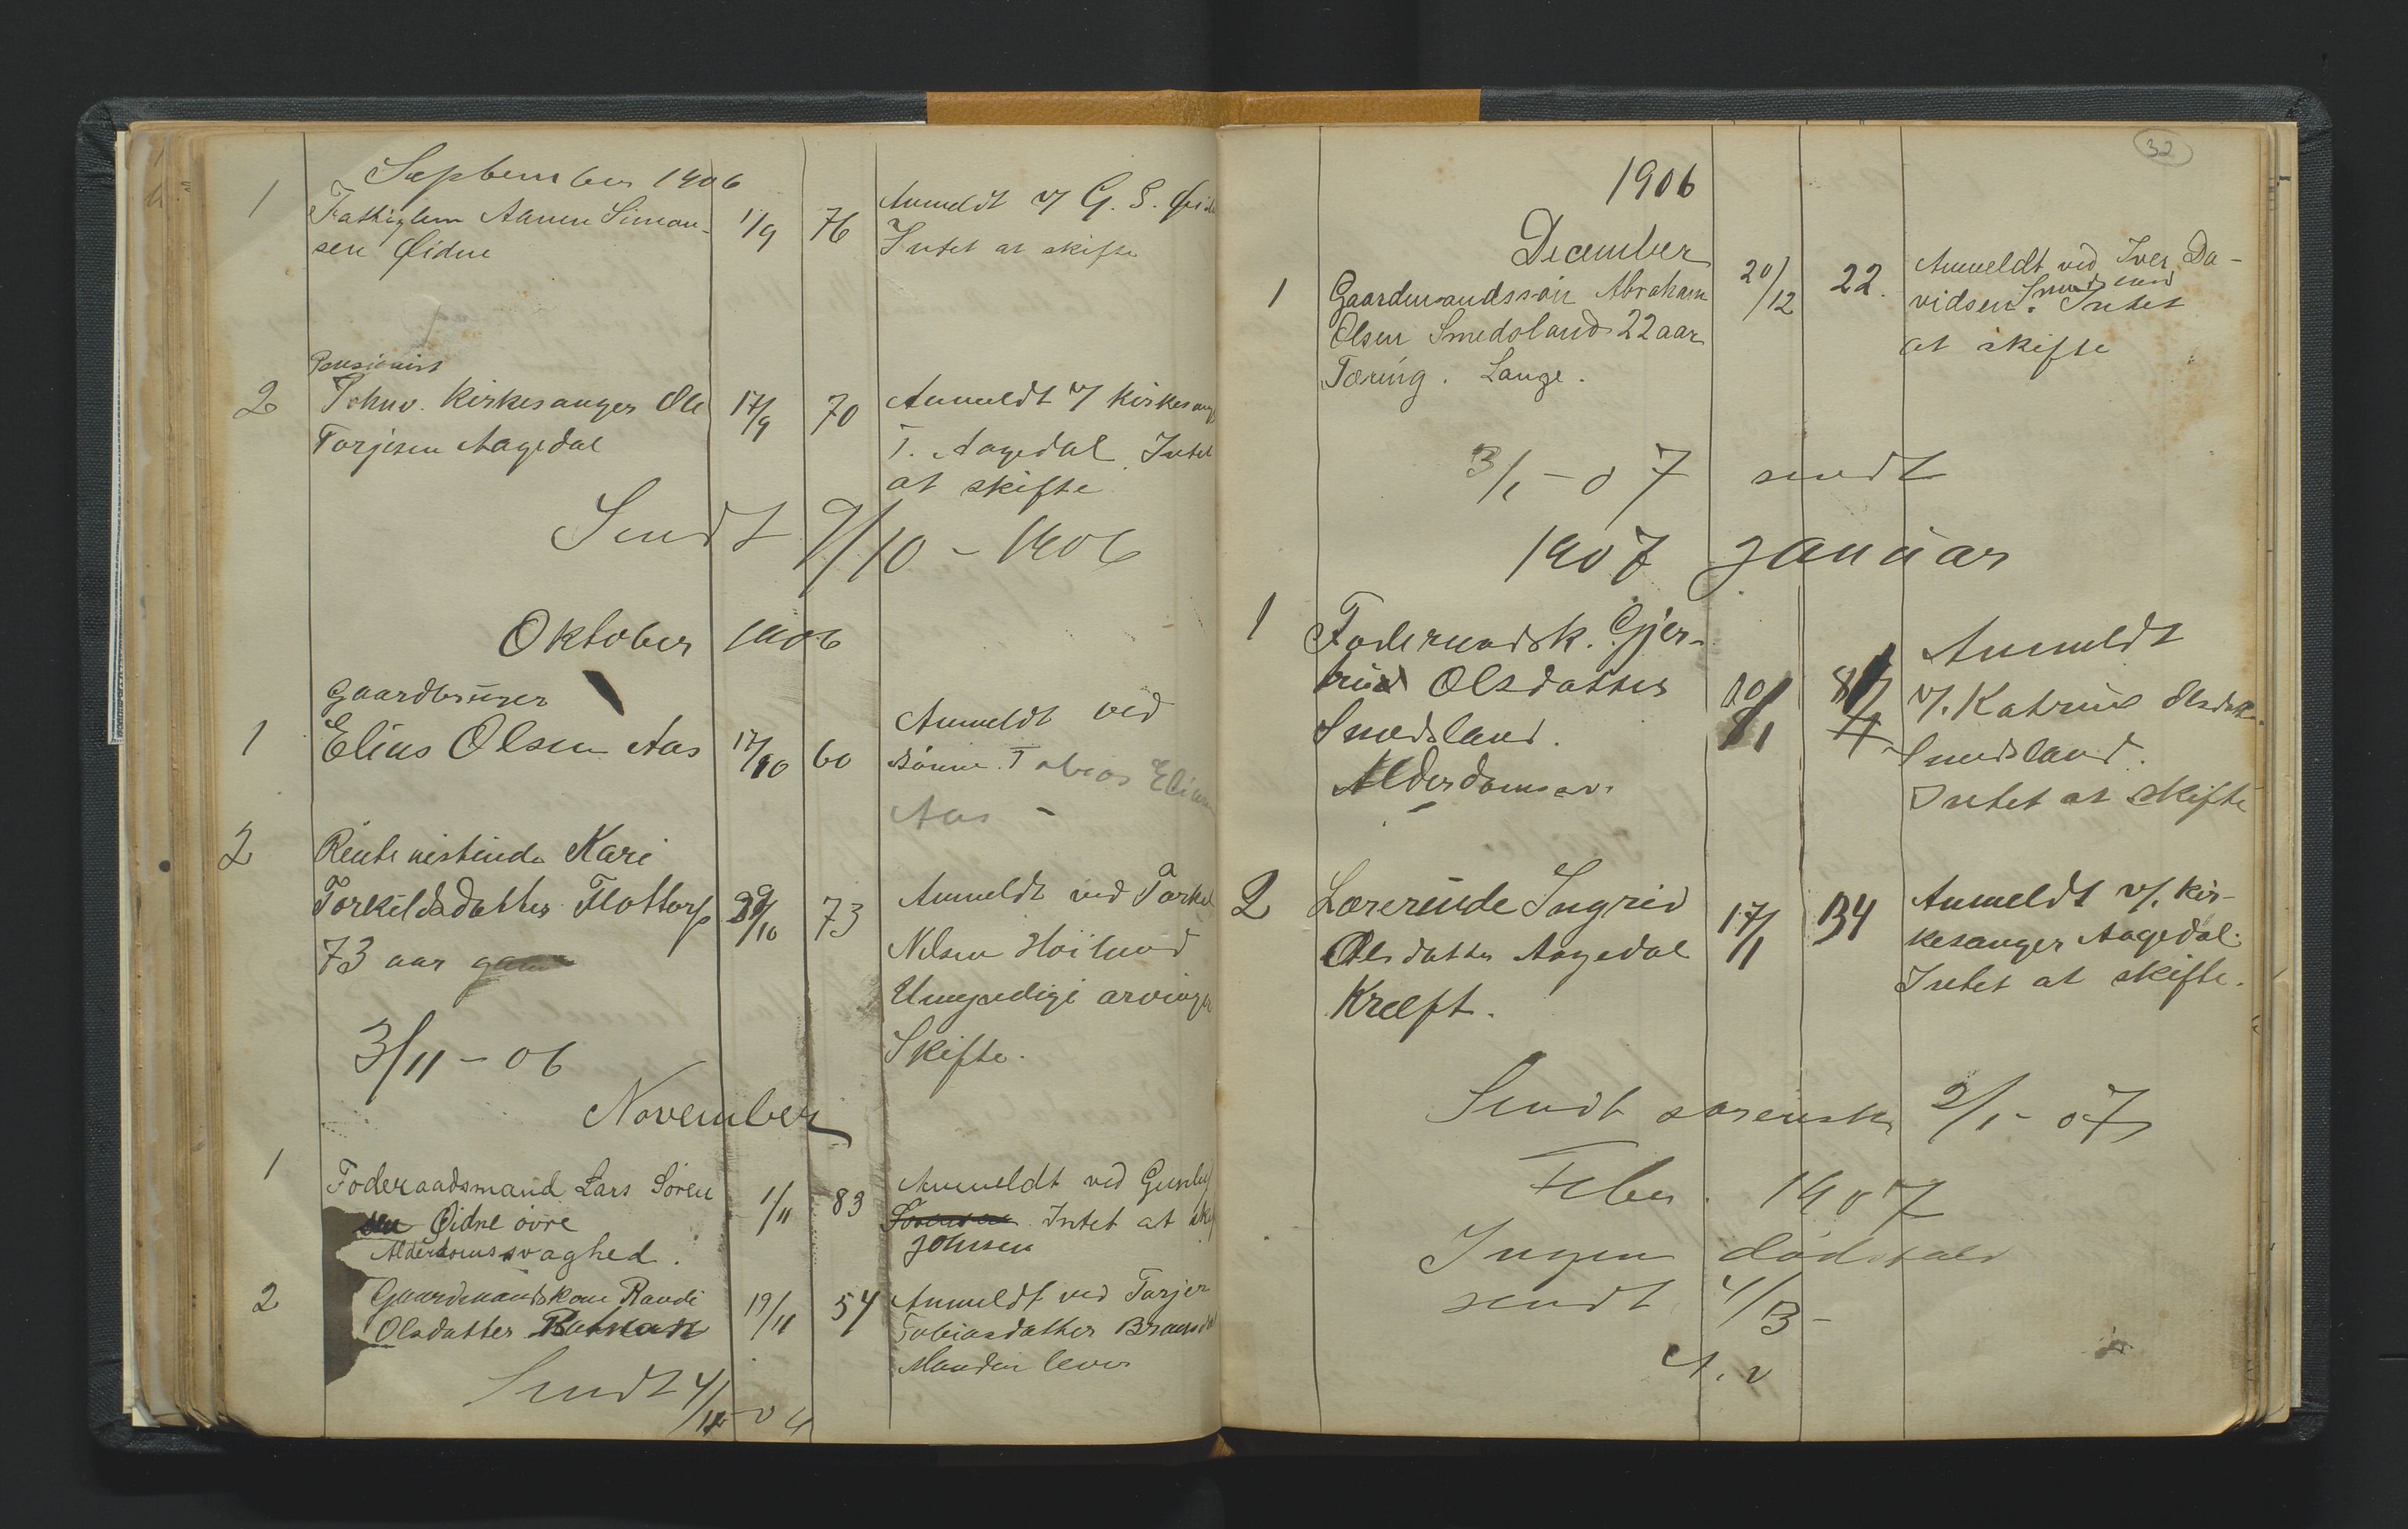 September 1906
1 Fattiglem Aanen Simon-
sen Øidne 1/9 76
Anmeldt v/ G. S. Øidn
Intet at skifte
Pensionist
2 Kirkesanger Ole
Torjesen Aagedal 17/9 70
Anmeldt v/ Kirkesang
T. Aagedal Intet
at skifte
Sendt 9/10 - 1906
Oktober 1906
Gaardbruger
1 Elias Olsen Aas 17/10 60
Anmeldt ved
sønnen Tobias Elias
Aas -
2 Rentenistinde Kari
Torkeldsdatter Flottorp 29/10 73
73 aar gam
Anmeldt ved Torkel
Nilsen Høiland
Umyndige arvinger
Skifte.
3/11 - 06
November
1 Foderaadsmand Lars Søren
sen Øidne øvre 1/11 83
Alderdomssvaghed.
Anmeldt ved Gunluf
Sørensen Intet at skif
Johnsen
2 Gaardmandskone Randi
Olsdatter 19/11 54
Anmeldt ved Tarjer
Tobiasdatter Bransdal
Manden lever
Sendt 4/12 - 06
32
1906
December
1 Gaardmandssøn Abraham
Olsen Smedsland 22 aar
Tæring. Lange. 20/12 22.
Anmeldt ved Iver Da-
Smedsland
vidsen. Intet
at skifte
3/1 - 07 sendt
1907 Januar
1 Foderaadsk. Gjer-
trud Olsdatter
Smedsland. 10/1
Alderdomssv.
Anmeldt
v/. Katrine Olsdatter
Smedsland.
Intet at skifte
2 Lærerinde Ingrid
Olsdatter Aagedal 17/1 34
Kræft.
Anmeldt v/. Kir-
kesanger Aagedal.
Intet at skifte.
Sendt sorensk 2/1 - 07
Febr. 1907
Ingen dødsfald
sendt 4/3 -